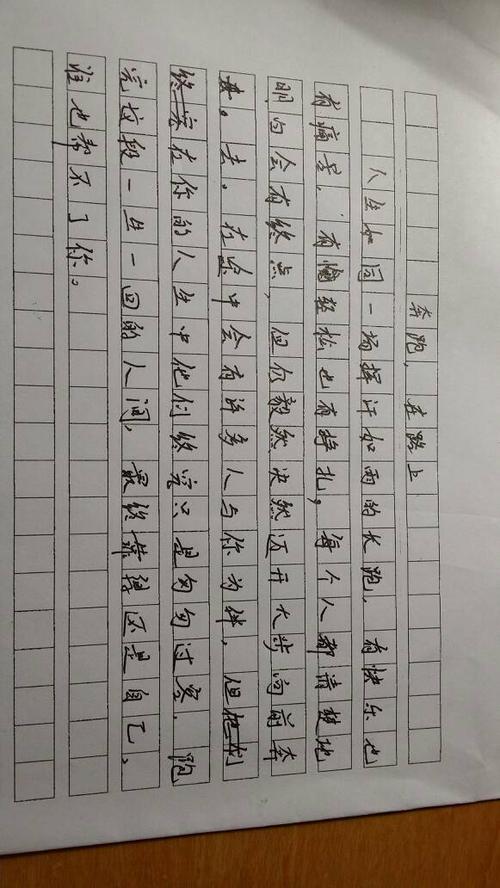 奔跑，在路上
人生如同一场挥汗如雨的长跑，有快乐也
有痛，有轻松也有挣扎，每个人都清楚地
明白会有终点，但仍毅然决然迈开大步向前奔
去。在途中会有许多人与你为伴，但他们
终究在你的人生中他们终究只是匆匆过客。跑
完这段一生一回的人间，最终靠得还是自己，
谁也帮不了你。